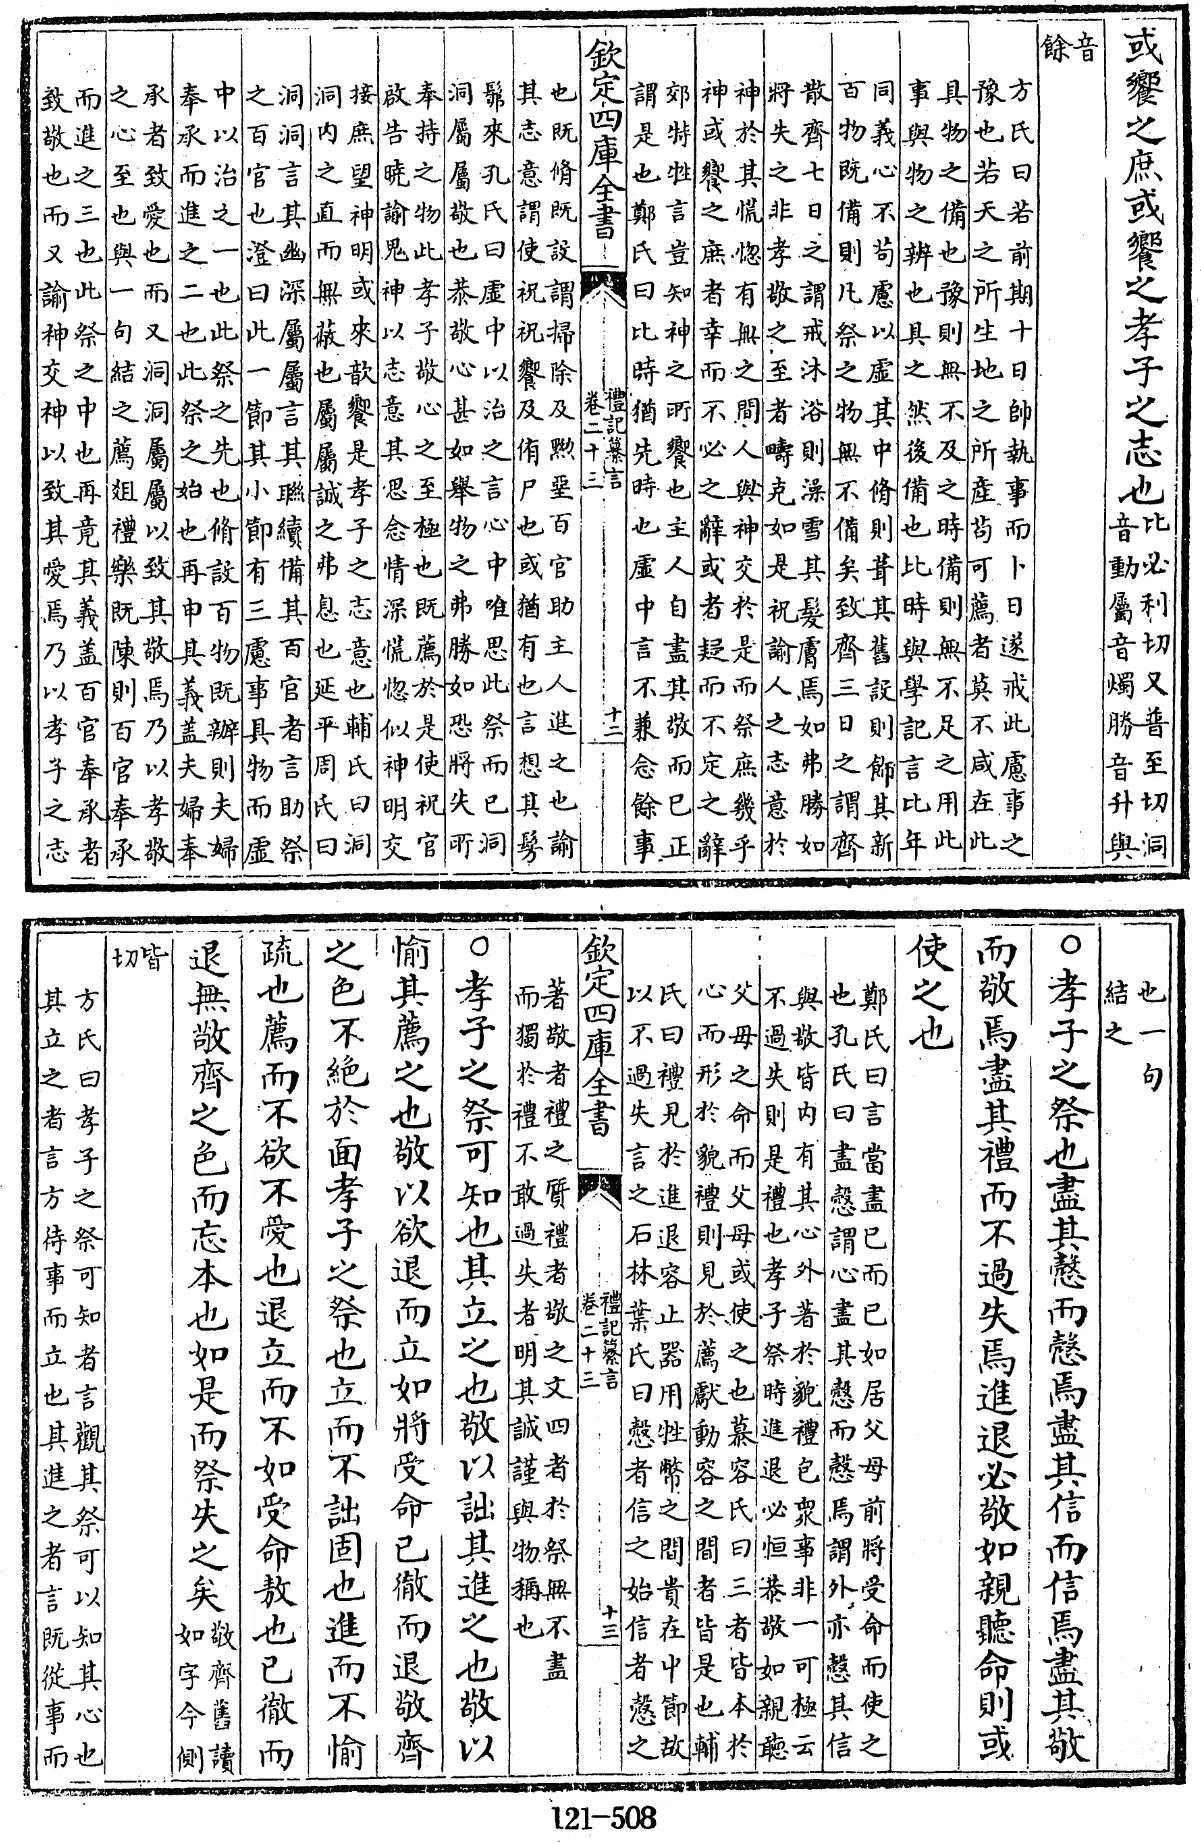 或饗之庶或饗之孝子之志也比必利切又普至切洞
音動屬音燭勝音升與
音
餘
方氏曰若前期十日帥執事而卜日遂戒此慮事之
豫也若天之所生地之所産苟可薦者莫不咸在此
具物之備也豫則無不及之時備則無不足之用此
事與物之辨也具之然後備也比時與學記言比年
同義心不苟慮以虛其中脩則葺其舊設則飾其新
百物既備則凡祭之物無不備矣致齊三日之謂齊
散齊七日之謂戒沐浴則澡雪其髮膚焉如弗勝如
將失之非孝敬之至者疇克如是祝諭人之志意於
神於其慌惚有無之間人與神交於是而祭庶幾乎
神或饗之庶者幸而不必之辭或者疑而不定之辭
郊特牲言豈知神之所饗也主人自盡其敬而已正
謂是也鄭氏曰比時猶先時也虛中言不兼念餘事
欽定四庫全書
禮記纂言
卷二十三
十二
也既脩既設謂掃除及黝堊百官助主人進之也諭
其志意謂使祝祝饗及侑尸也或猶有也言想其髣
髴來孔氏曰虛中以治之言心中唯思此祭而已洞
洞屬屬敬也恭敬心甚如舉物之弗勝如恐將失所
奉持之物此孝子敬心之至極也既薦於是使祝官
啟告曉諭鬼神以志意其思念情深慌惚似神明交
接庶望神明或來歆饗是孝子之志意也輔氏曰洞
洞內之直而無蔽也屬屬誠之弗息也延平周氏曰
洞洞言其幽深屬屬言其聯續備其百官者言助祭
之百官也澄曰此一節其小節有三慮事具物而虛
中以治之一也此祭之先也脩設百物既辦則夫婦
奉承而進之二也此祭之始也再申其義盖夫婦奉
承者致愛也而又洞洞屬屬以致其敬焉乃以孝敬
之心至也與一句結之薦俎禮樂既陳則百官奉承
而進之三也此祭之中也再竟其義盖百官奉承者
致敬也而又諭神交神以致其愛焉乃以孝子之志
也一句
結之
○孝子之祭也盡其慤而慤焉盡其信而信焉盡其敬
而敬焉盡其禮而不過失焉進退必敬如親聽命則或
使之也
鄭氏曰言當盡已而已如居父母前將受命而使之
也孔氏曰盡慤謂心盡其慤而慤焉謂外亦慤其信
與敬皆內有其心外著於貌禮包衆事非一可極云
不過失則是禮也孝子祭時進退必恒恭敬如親聽
父母之命而父母或使之也慕容氏曰三者皆本於
心而形於貌禮則見於薦獻動容之間者皆是也輔
氏曰禮見於進退容止器用牲幣之間貴在中節故
以不過失言之石林葉氏曰慤者信之始信者慤之
欽定四庫全書
禮記纂言
卷二十三
十三
著敬者禮之質禮者敬之文四者於祭無不盡
而獨於禮不敢過失者明其誠謹與物稱也
○孝子之祭可知也其立之也敬以詘其進之也敬以
愉其薦之也敬以欲退而立如將受命已徹而退敬齊
之色不絕於面孝子之祭也立而不詘固也進而不愉
疏也薦而不欲不愛也退立而不如受命敖也已徹而
退無敬齊之色而忘本也如是而祭失之矣敬齊舊讀
如字今側
皆
切
方氏曰孝子之祭可知者言觀其祭可以知其心也
其立之者言方待事而立也其進之者言既從事而
121-508